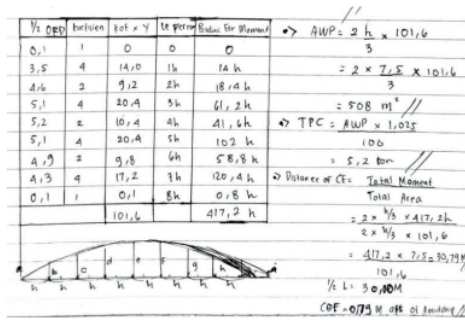 ½ ORD koefisien kof x Y Le perm Produc For Moment
0,1 1 0 0 0
3,5 4 14,0 1h 14 h
4,6 2 9,2 2h 18,4 h
5,1 4 20,4 3h 61,2h
5,2 2 10,4 4h 41,6h
5,1 4 20,4 5h 102 h
4,9 2 9,8 6h 58,8 h
4,3 4 17,2 7h 120,4 h
0,1 1 0,1 8h 0,8 h
101,6 417,2 h
b c d e f g h
h h h h h h h h
•> AWP = 2 h x 101,6
3
= 2 x 7,5 x 101,6
3
= 508 m²
•> TPC = AWP x 1,025
100
= 5,2 ton
•> Distance of CF = Total Moment
Total Area
= 2 x h/3 x 417,2h
2 x h/3 x 101,6
= 417,2 x 7,5 = 30,79M
101,6
½ L = 30,00M
COF = 0,79 M aft of Amidship